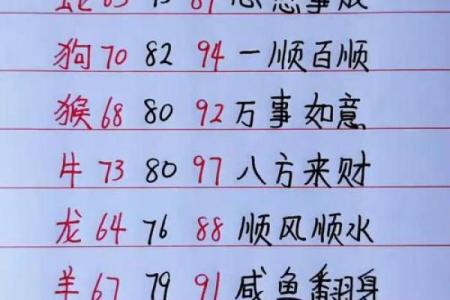 蛇 心想事成
狗 70 82 94 一顺百顺
猴 68 80 92 万事如意
牛 73 80 97 八方来财
龙 64 76 88 顺风顺水
羊 67 79 91 咸鱼翻身